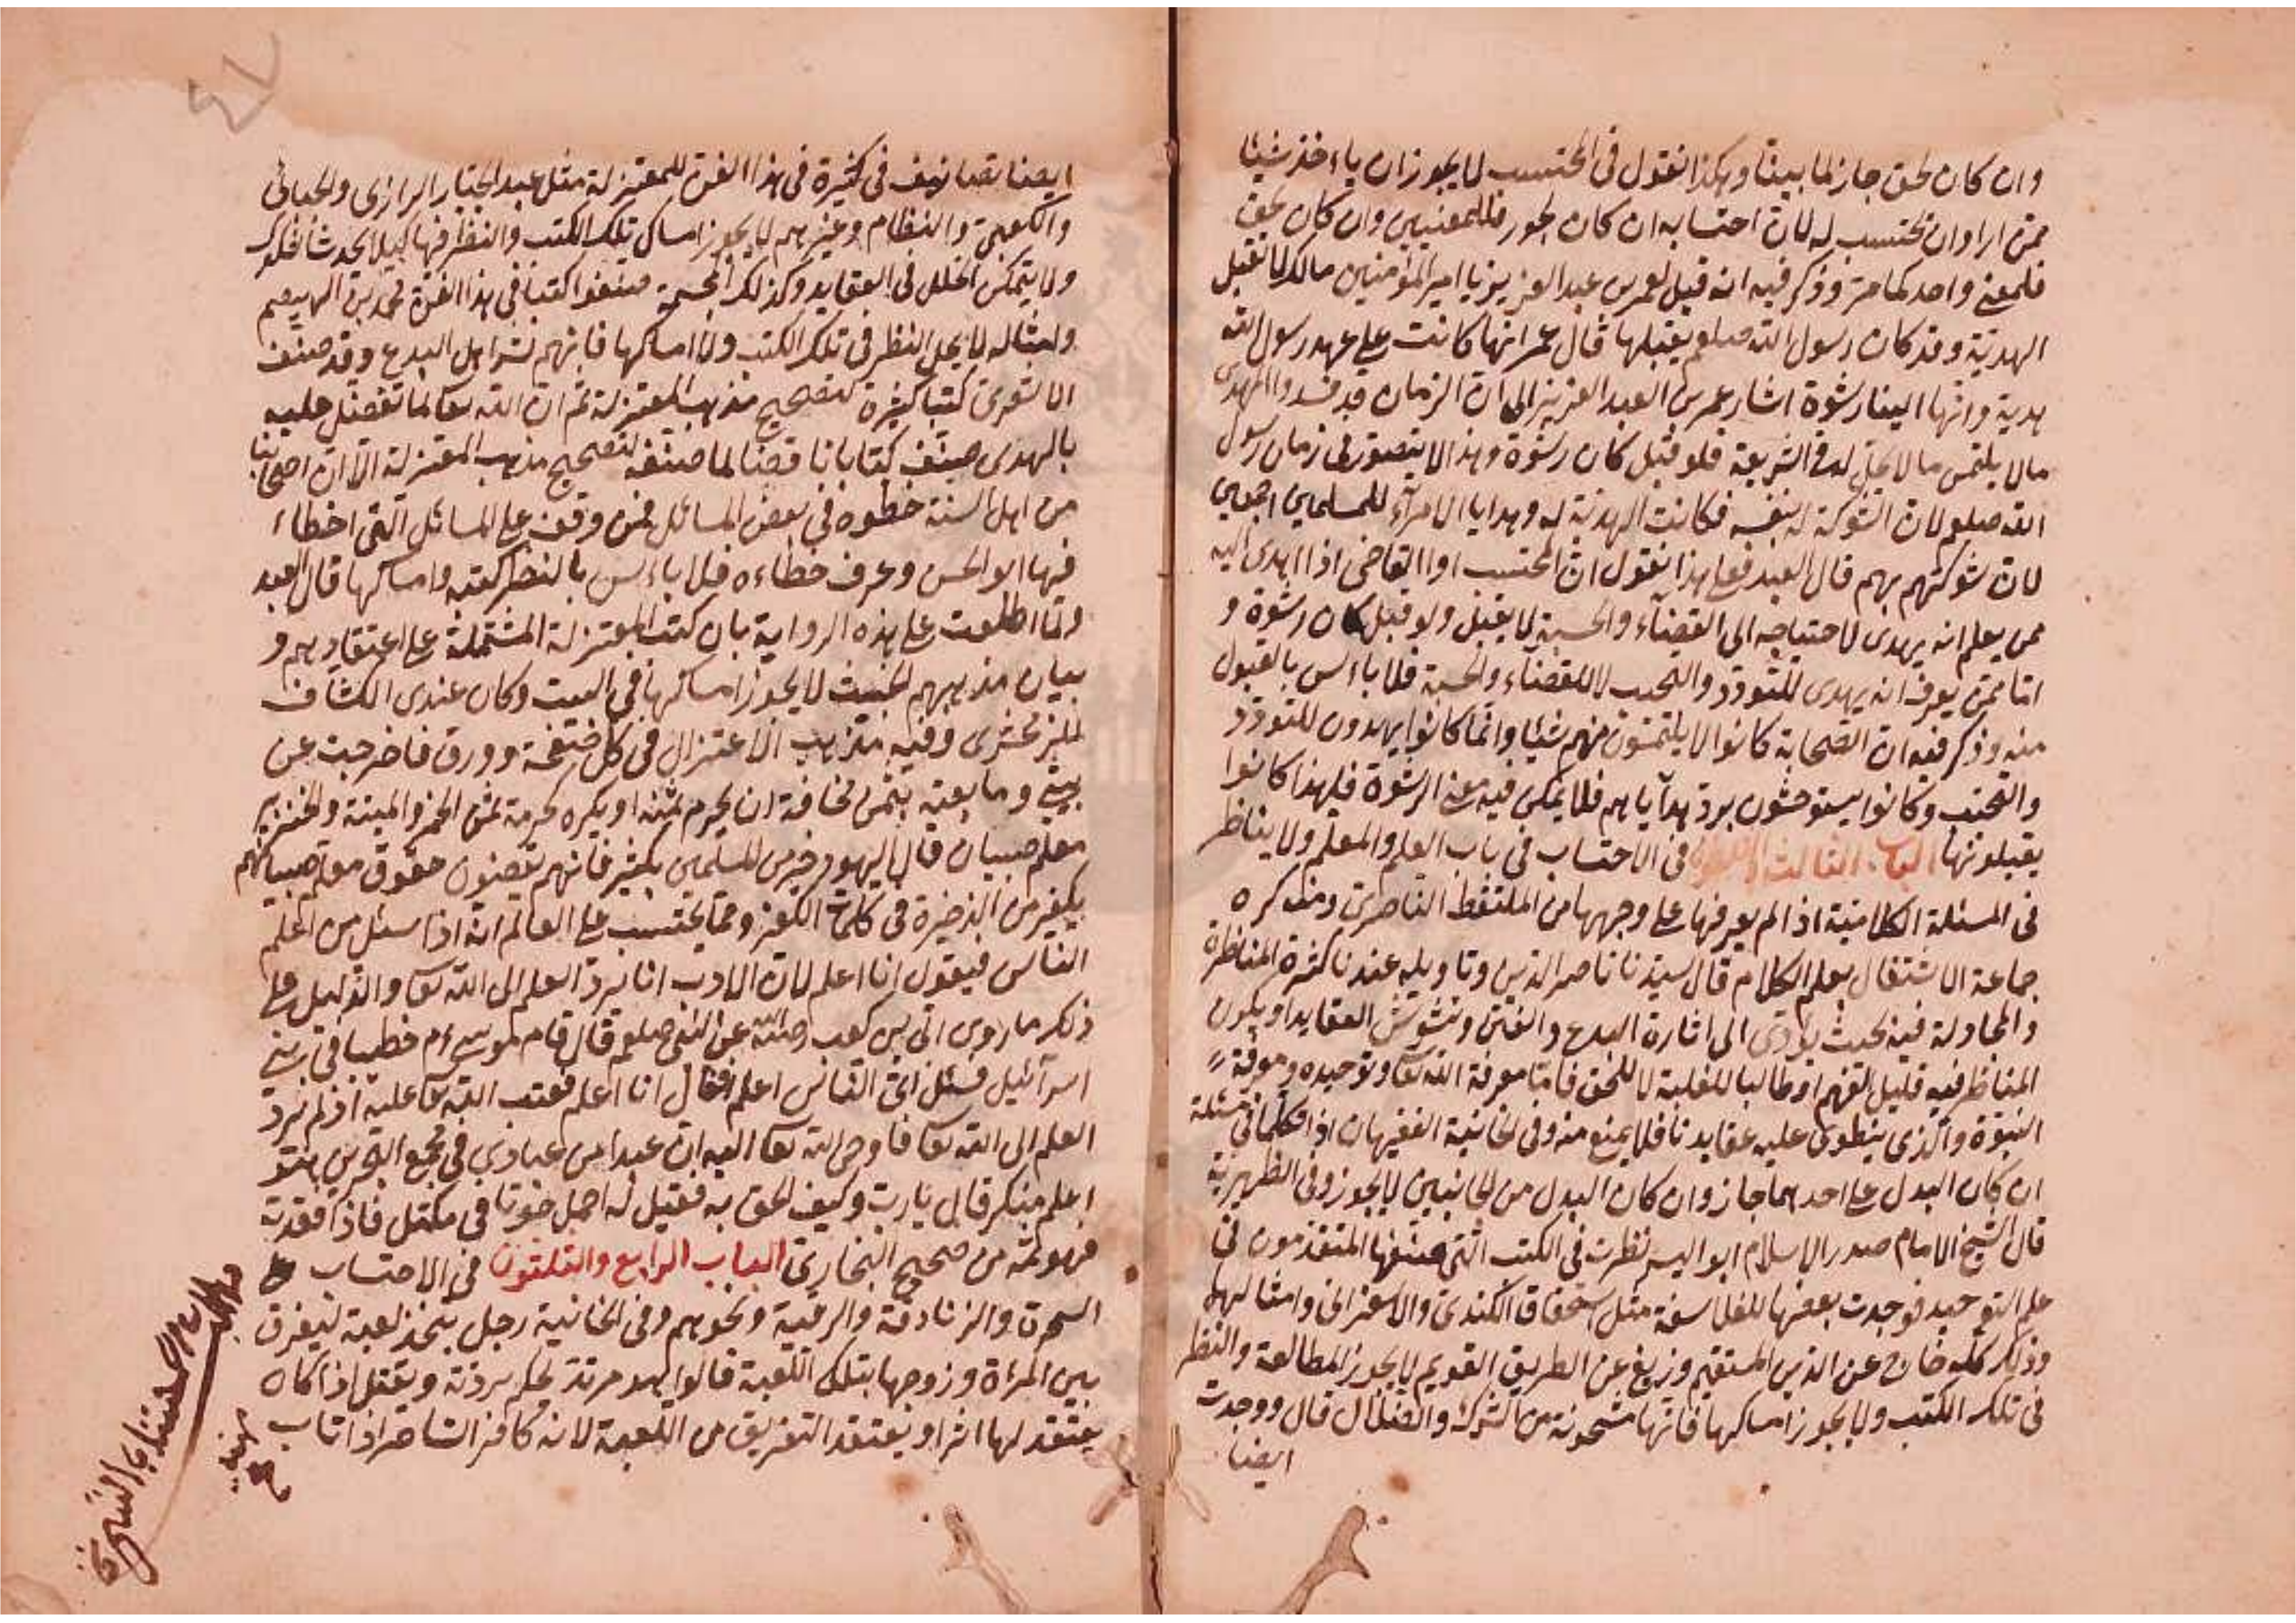 وان كان لحق جاز لما بينا وهكذا نقول فى المحتسب لا يجوز ان ياءخذ شيئا
ممن اراد ان يحتسب له لان احتسابه ان كان لجور فللمعنيين وان كان لحق
فلمعنى واحد كما مر وذكر فيه انه قيل لعمر بن عبد العزيز يا امير المؤمنين مالك لا تقبل
الهدية وقد كان رسول الله صلعم يقبلها قال عمر انها كانت على عهد رسول الله
هدية وانها الينا رشوة اشار عمر بن العبد العزيز الى ان الزمان قد فسد والمهدى
مالا يلتمس مالا يحل له فى الشريعة فلو قبل كان رشوة وهذا لا يتصور فى زمان رسول
الله صلعم لان الشوكة له بنفسه فكانت الهدية له وهدايا الامراء للمسلمين اجمعين
لان شوكتهم بهم قال العبد فعلى هذا نقول ان المحتسب او القاضى اذا اهدى اليه
ممن يعلم انه يهدى لاحتياجه الى القضاء والحسبة لا يقبل ولو قبل كان رشوة و
اما ممن يعرف انه يهدى للتودد والتحبب لا للقضاء والحسبة فلا باءس بالقبول
منه وذكر فيه ان الصحابة كانوا لا يلتمسون منهم شيئا وانما كانوا يهدون للتودد
والتحبب وكانوا يستوحشون برد هداياهم فلا يمكن فيه معنى الرشوة فلهذا كانوا
يقبلونها الباب الثالث والثلثون فى الاحتساب فى باب العلم والمعلم ولا يناظر
فى المسئلة الكلامية اذا لم يعرفها على وجهها من الملتقط الناصرى ومنه كره
جماعة الاشتغال بعلم الكلام قال سيدنا ناصر الدين وتاويله عندنا كثرة المناظرة
والمجادلة فيه بحيث يؤدى الى اثارة البدع والفتن وتشويش العقايد او يكون
المناظر فيه قليل الفهم او طالبا للغلبة لا للحق فاما معرفة الله تعا وتوحيده ومعرفة
النبوة والذى ينطوى عليه عقايدنا فلا يمنع منه وفى الخانية الفقيهان اذا تكلما فى مسئلة
ان كان البدل على احدهما جاز وان كان البدل من الجانبين لا يجوز وفى الظهيرية
قال الشيخ الامام صدر الاسلام ابو اليسر نظرت فى الكتب التى صنفها المتقدمون فى
علم التوحيد فوجدت بعضها للفلاسفة مثل اسحاق الكندى والاسفزارى وامثالهما
وذلك كله خارج عن الدين المستقيم وزيغ عن الطريق القويم لا يجوز المطالعة والنظر
فى تلك الكتب ولا يجوز امساكها فانها مشحونة من الشرك والضلال قال ووجدت
ايضا
ايضا تصانيف فى كثيرة فى هذا الفن للمعتزلة مثل عبد الجبار الرازى والجبائى
والكعبى والنظام وغيرهم لا يجوز امساك تلك الكتب والنظر فيها كيلا يحدث الشكوك
ولا يتمكن الخلل فى العقايد وكذلك المجسمة صنفوا كتبا فى هذا الفن محمد بن الهيصم
وامثاله لا يحل النظر فى تلك الكتب ولا امساكها فانهم شر اهل البدع وقد صنف
الاشعرى كتبا كثيرة لتصحيح مذهب المعتزلة ثم ان الله تعا لما تفضل عليه
بالهدى صنف كتابا ناقضا لما صنفه لتصحيح مذهب المعتزلة الا ان اصحابنا
من اهل السنة خطوه فى بعض المسائل فمن وقف على المسائل التى اخطاء
فيها ابو الحسن وعرف خطاءه فلا باءس بالنظر كتبه وامساكها قال العبد
ولما اطلعت على هذه الرواية بان كتب المعتزلة المشتملة على اعتقادهم و
بيان مذهبهم الخبيث لا يجوز امساكها فى البيت وكان عندى الكشاف
للزمخشرى وفيه مذهب الاعتزال فى كل صفحة وورق فاخرجت عن
بيتى وما بعته بثمن مخافة ان يحرم ثمنه او يكره كحرمة ثمن الخمر والميتة والخنزير
معلم صبيان قال اليهود خير من المسلمين بكثير فانهم يقضون حقوق معلم صبيانهم
يكفر من الذخيرة فى كلمات الكفر ومما يحتسب على العالم انه اذا سئل من اعلم
الناس فيقول انا اعلم لان الادب ان يرد العلم الى الله تعا والدليل على
ذلك ما روى ابى بن كعب رضى الله عن النبى صلعم قال قام موسى عم خطيبا فى بنى
اسرآئيل فسئل اى الناس اعلم فقال انا اعلم فعتب الله تعا عليه اذ لم يرد
العلم الى الله تعا فاوحى الله تعا اليه ان عبدا من عبادى فى مجمع البحرين هو
اعلم منك قال يا رب وكيف لحق به فقيل له احمل حوتا فى مكتل فاذا فقدته
فهو ثمه من صحيح البخارى الباب الرابع والثلثون فى الاحتساب على
السحرة والزنادقة والرقية ونحوهم وفى الخانية رجل يتخذ لعبة ليفرق
بين المراة وزوجها بتلك اللعبة قالوا هو مرتد يحكم بردته ويقتل اذا كان
يعتقد لها اثرا ويعتقد التفريق من اللعبة لانه كافر الساحر اذا تاب